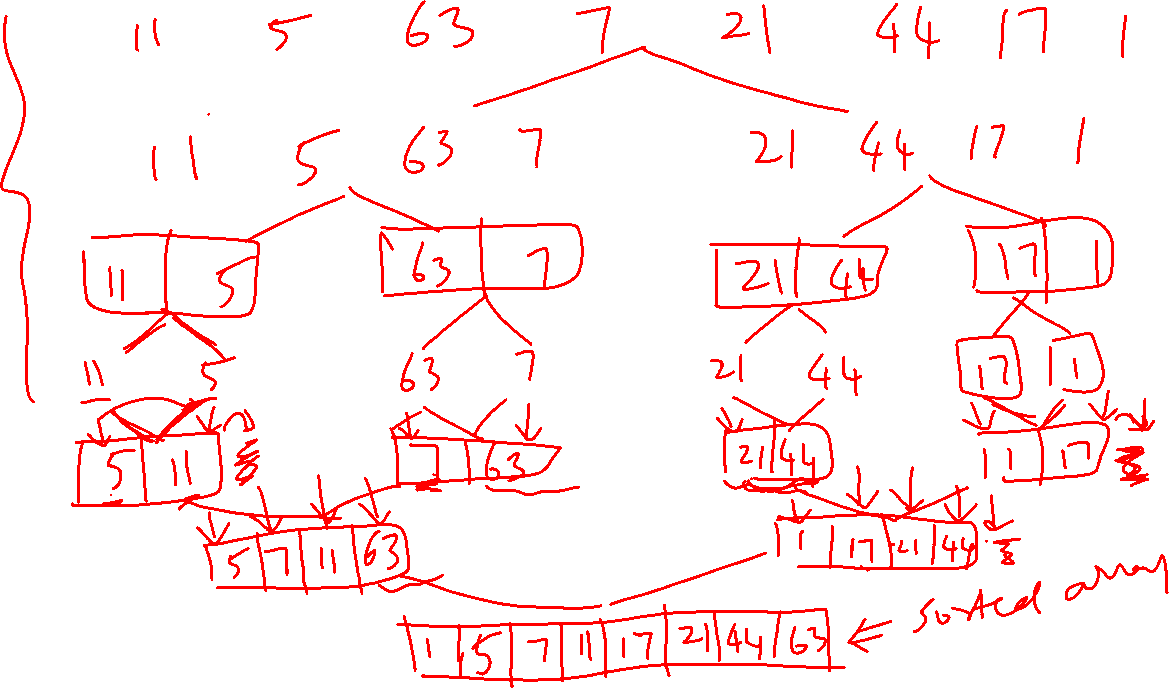 11 5 63 7 21 44 17 1
11 5 63 7 21 44 17 1
11 5 63 7 21 44 17 1
11 5 63 7 21 44 17 1
5 11 7 63 21 44 1 17
5 7 11 63 1 17 21 44
1 5 7 11 17 21 44 63 sorted array